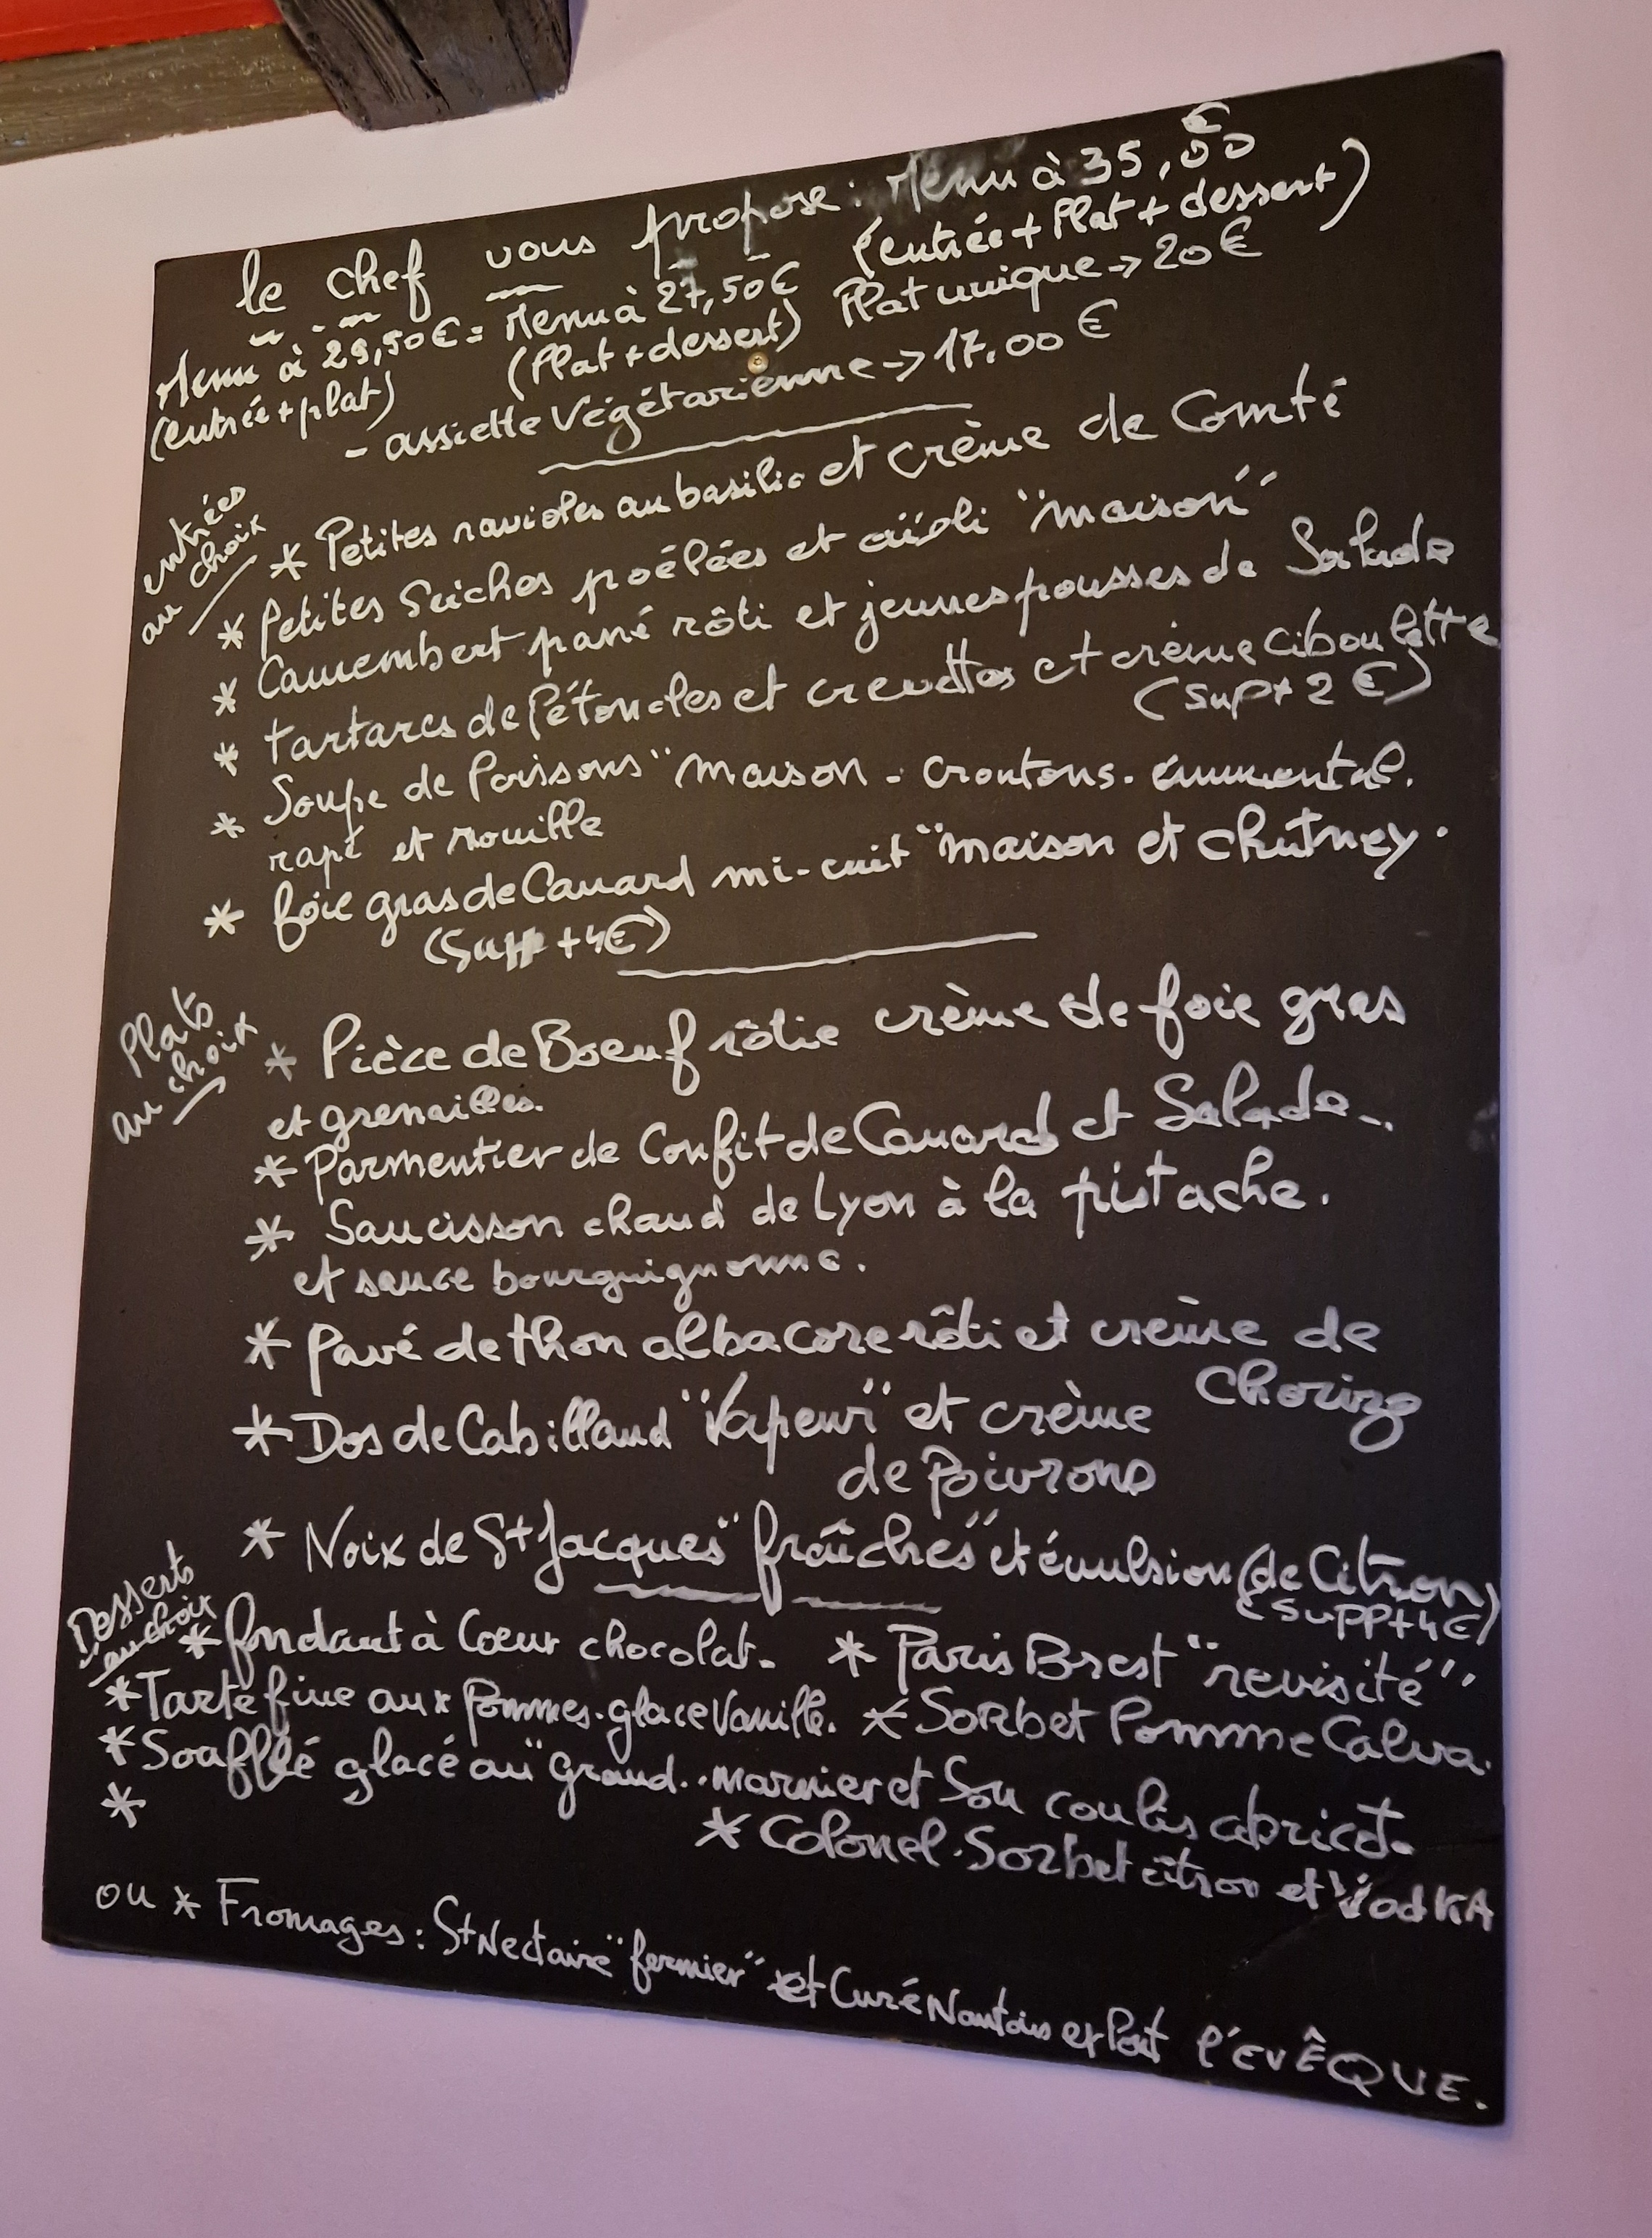 le chef vous propose : Menu à 35,00 €
(entrée + Plat + dessert)
Menu à 29,50 € = Menu à 27,50 € Plat unique → 20 €
(entrée + plat) (Plat + dessert)
- assiette Végétarienne → 17.00 €
entrées
au choix
* Petites ravioles au basilic et crème de Comté
* Petites Seiches poêlées et aïoli "maison"
* Camembert pané rôti et jeunes pousses de Salade
* tartares de Pétoncles et crevettes et crème Ciboulette
(sup + 2 €)
* Soupe de Poissons "maison - croutons. emmental.
rapé et rouille
* foie gras de Canard mi-cuit "maison et chutney.
(Supp + 4€)
Plats
au choix
* Pièce de Boeuf rôtie crème de foie gras
et grenailles.
* Parmentier de Confit de Canard et Salade.
* Saucisson chaud de Lyon à la pistache.
et sauce bourguignonne.
* Pavé de thon albacore rôti et crème de
Chorizo
* Dos de Cabillaud "Vapeur" et crème
de Poivrons
* Noix de St Jacques "fraîches" et émulsion (de Citron)
(supp + 4€)
Desserts
au choix
* fondant à Coeur chocolat. * Paris Brest "revisité"
* Tarte fine aux Pommes. glace Vanille. * Sorbet Pomme Calva.
* Soufflé glacé au "Grand.. marnier et Son coulis abricot.
* * Colonel. Sorbet citron et Vodka
ou * Fromages : St Nectaire "fermier" et Curé Nantais et Pont l'ÉVÊQUE.